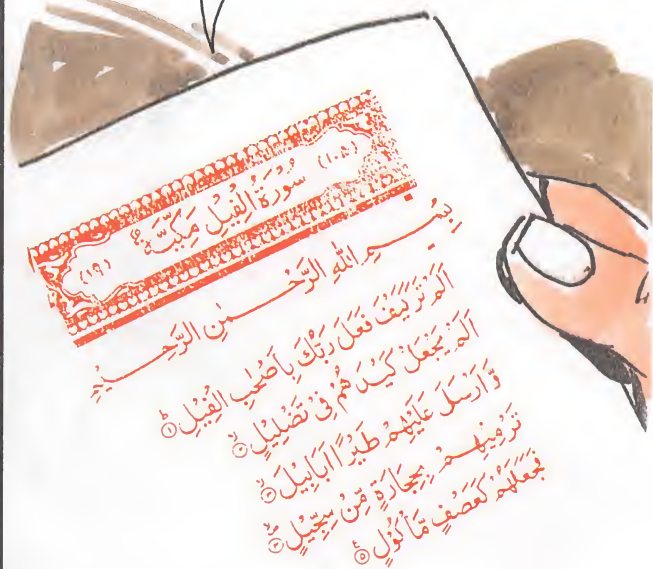 (۱۰۵) سُورَةُ الْفِيْلِ مَكِّيَّةٌ (۱۹)
بِسْمِ اللهِ الرَّحْمٰنِ الرَّحِيْمِ
اَلَمْ تَرَ كَيْفَ فَعَلَ رَبُّكَ بِاَصْحٰبِ الْفِيْلِ ۝۱
اَلَمْ يَجْعَلْ كَيْدَهُمْ فِيْ تَضْلِيْلٍ ۝۲
وَّ اَرْسَلَ عَلَيْهِمْ طَيْرًا اَبَابِيْلَ ۝۳
تَرْمِيْهِمْ بِحِجَارَةٍ مِّنْ سِجِّيْلٍ ۝۴
فَجَعَلَهُمْ كَعَصْفٍ مَّاْكُوْلٍ ۝۵